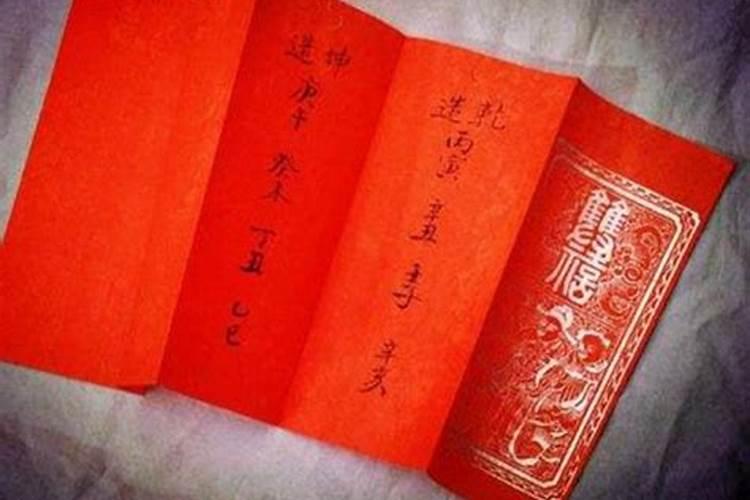 雙
乾
造
丙寅
辛丑
壬子
辛亥
坤
造
庚午
癸未
丁丑
乙巳